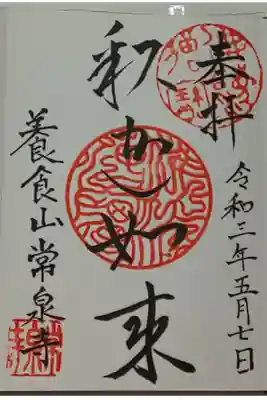 奉拝
令和三年五月七日
釈迦如来
養食山常泉寺